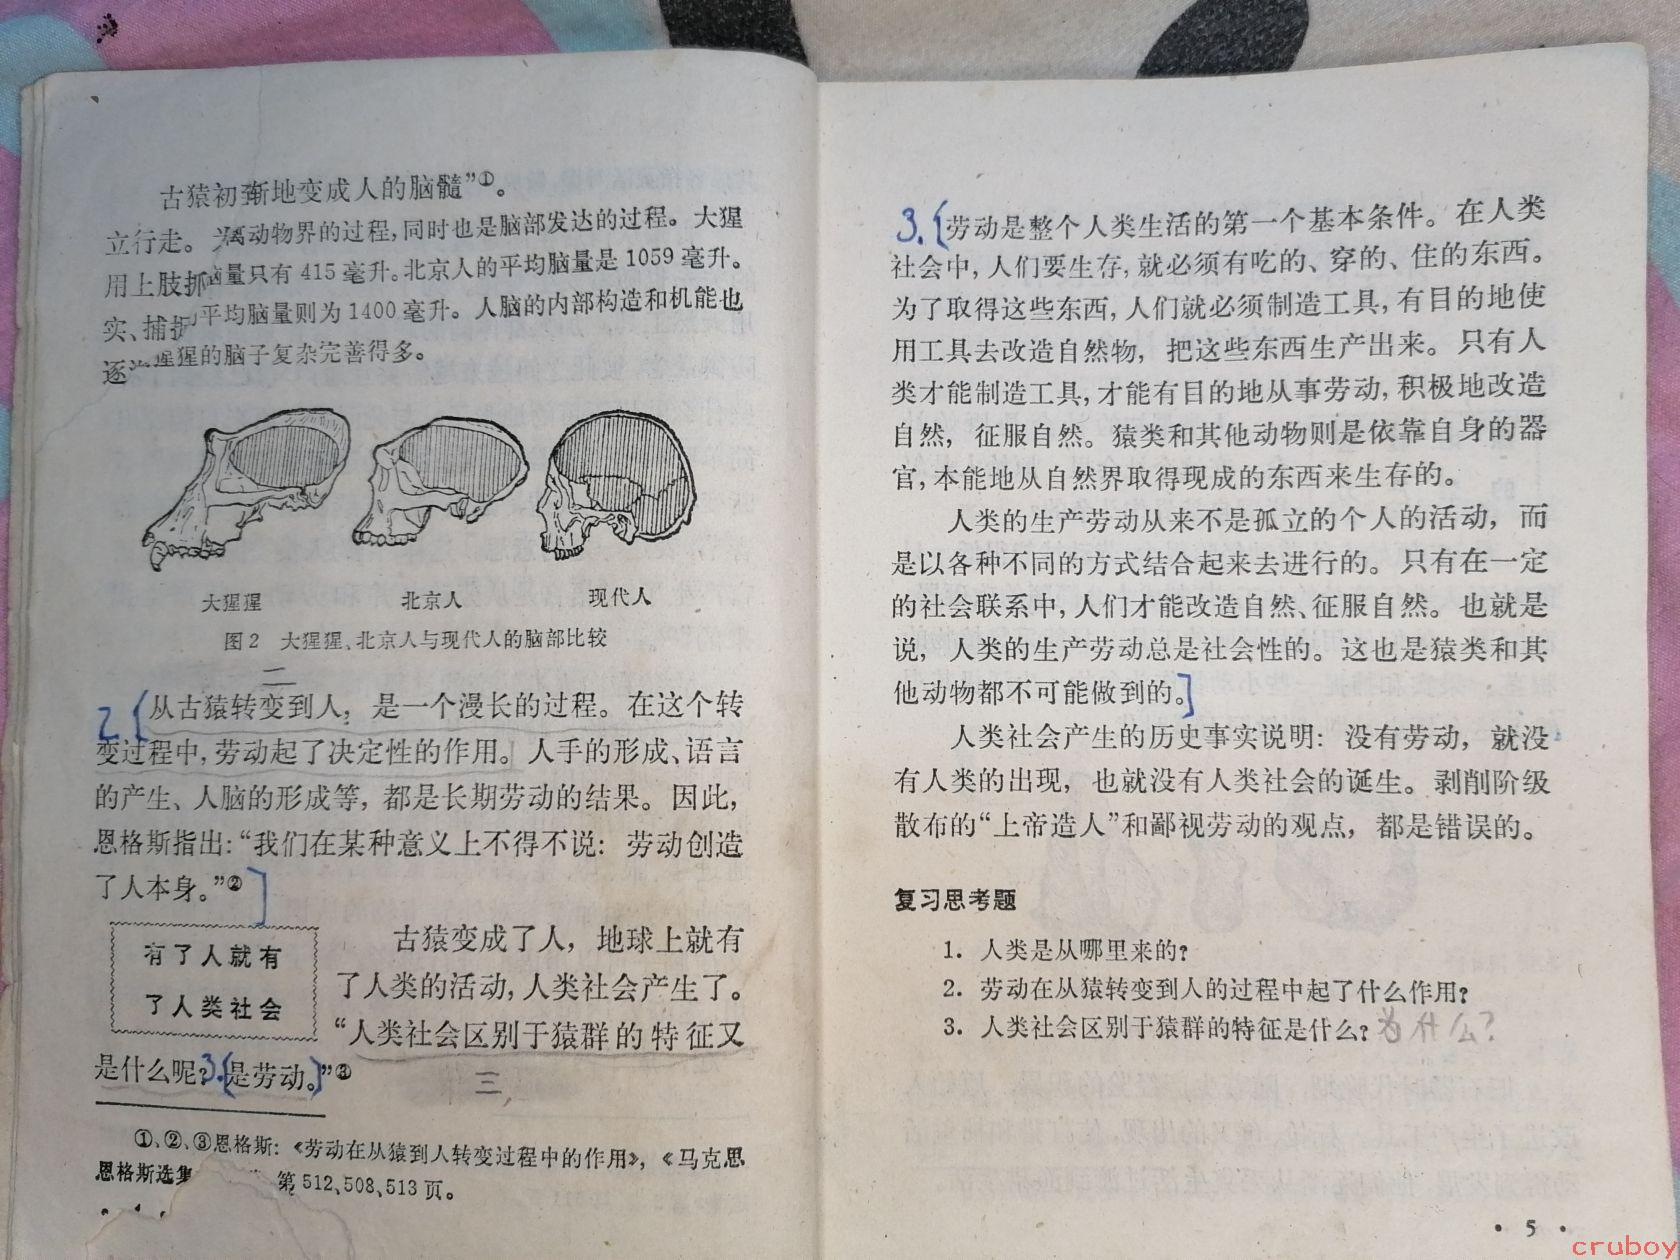 古猿初渐地变成人的脑髓”①。
立行走。离动物界的过程,同时也是脑部发达的过程。大猩
用上肢抓脑量只有 415 毫升。北京人的平均脑量是 1059 毫升。
实、捕捉平均脑量则为 1400 毫升。人脑的内部构造和机能也
逐猩猩的脑子复杂完善得多。
大猩猩 北京人 现代人
图2 大猩猩、北京人与现代人的脑部比较
二
2.[从古猿转变到人，是一个漫长的过程。在这个转
变过程中,劳动起了决定性的作用。人手的形成、语言
的产生、人脑的形成等，都是长期劳动的结果。因此，
恩格斯指出:“我们在某种意义上不得不说：劳动创造
了人本身。”②]
有了人就有
了人类社会
古猿变成了人，地球上就有
了人类的活动,人类社会产生了。
“人类社会区别于猿群的特征又
是什么呢?3.[是劳动。]”③
三
①、②、③恩格斯:《劳动在从猿到人转变过程中的作用》,《马克思
恩格斯选集 第 512、508、513 页。
3.[劳动是整个人类生活的第一个基本条件。在人类
社会中,人们要生存,就必须有吃的、穿的、住的东西。
为了取得这些东西,人们就必须制造工具,有目的地使
用工具去改造自然物，把这些东西生产出来。只有人
类才能制造工具,才能有目的地从事劳动,积极地改造
自然，征服自然。猿类和其他动物则是依靠自身的器
官,本能地从自然界取得现成的东西来生存的。
人类的生产劳动从来不是孤立的个人的活动，而
是以各种不同的方式结合起来去进行的。只有在一定
的社会联系中,人们才能改造自然、征服自然。也就是
说，人类的生产劳动总是社会性的。这也是猿类和其
他动物都不可能做到的。]
人类社会产生的历史事实说明：没有劳动，就没
有人类的出现，也就没有人类社会的诞生。剥削阶级
散布的“上帝造人”和鄙视劳动的观点，都是错误的。
复习思考题
1. 人类是从哪里来的?
2. 劳动在从猿转变到人的过程中起了什么作用?
3. 人类社会区别于猿群的特征是什么?为什么?
· 5 ·
cruboy